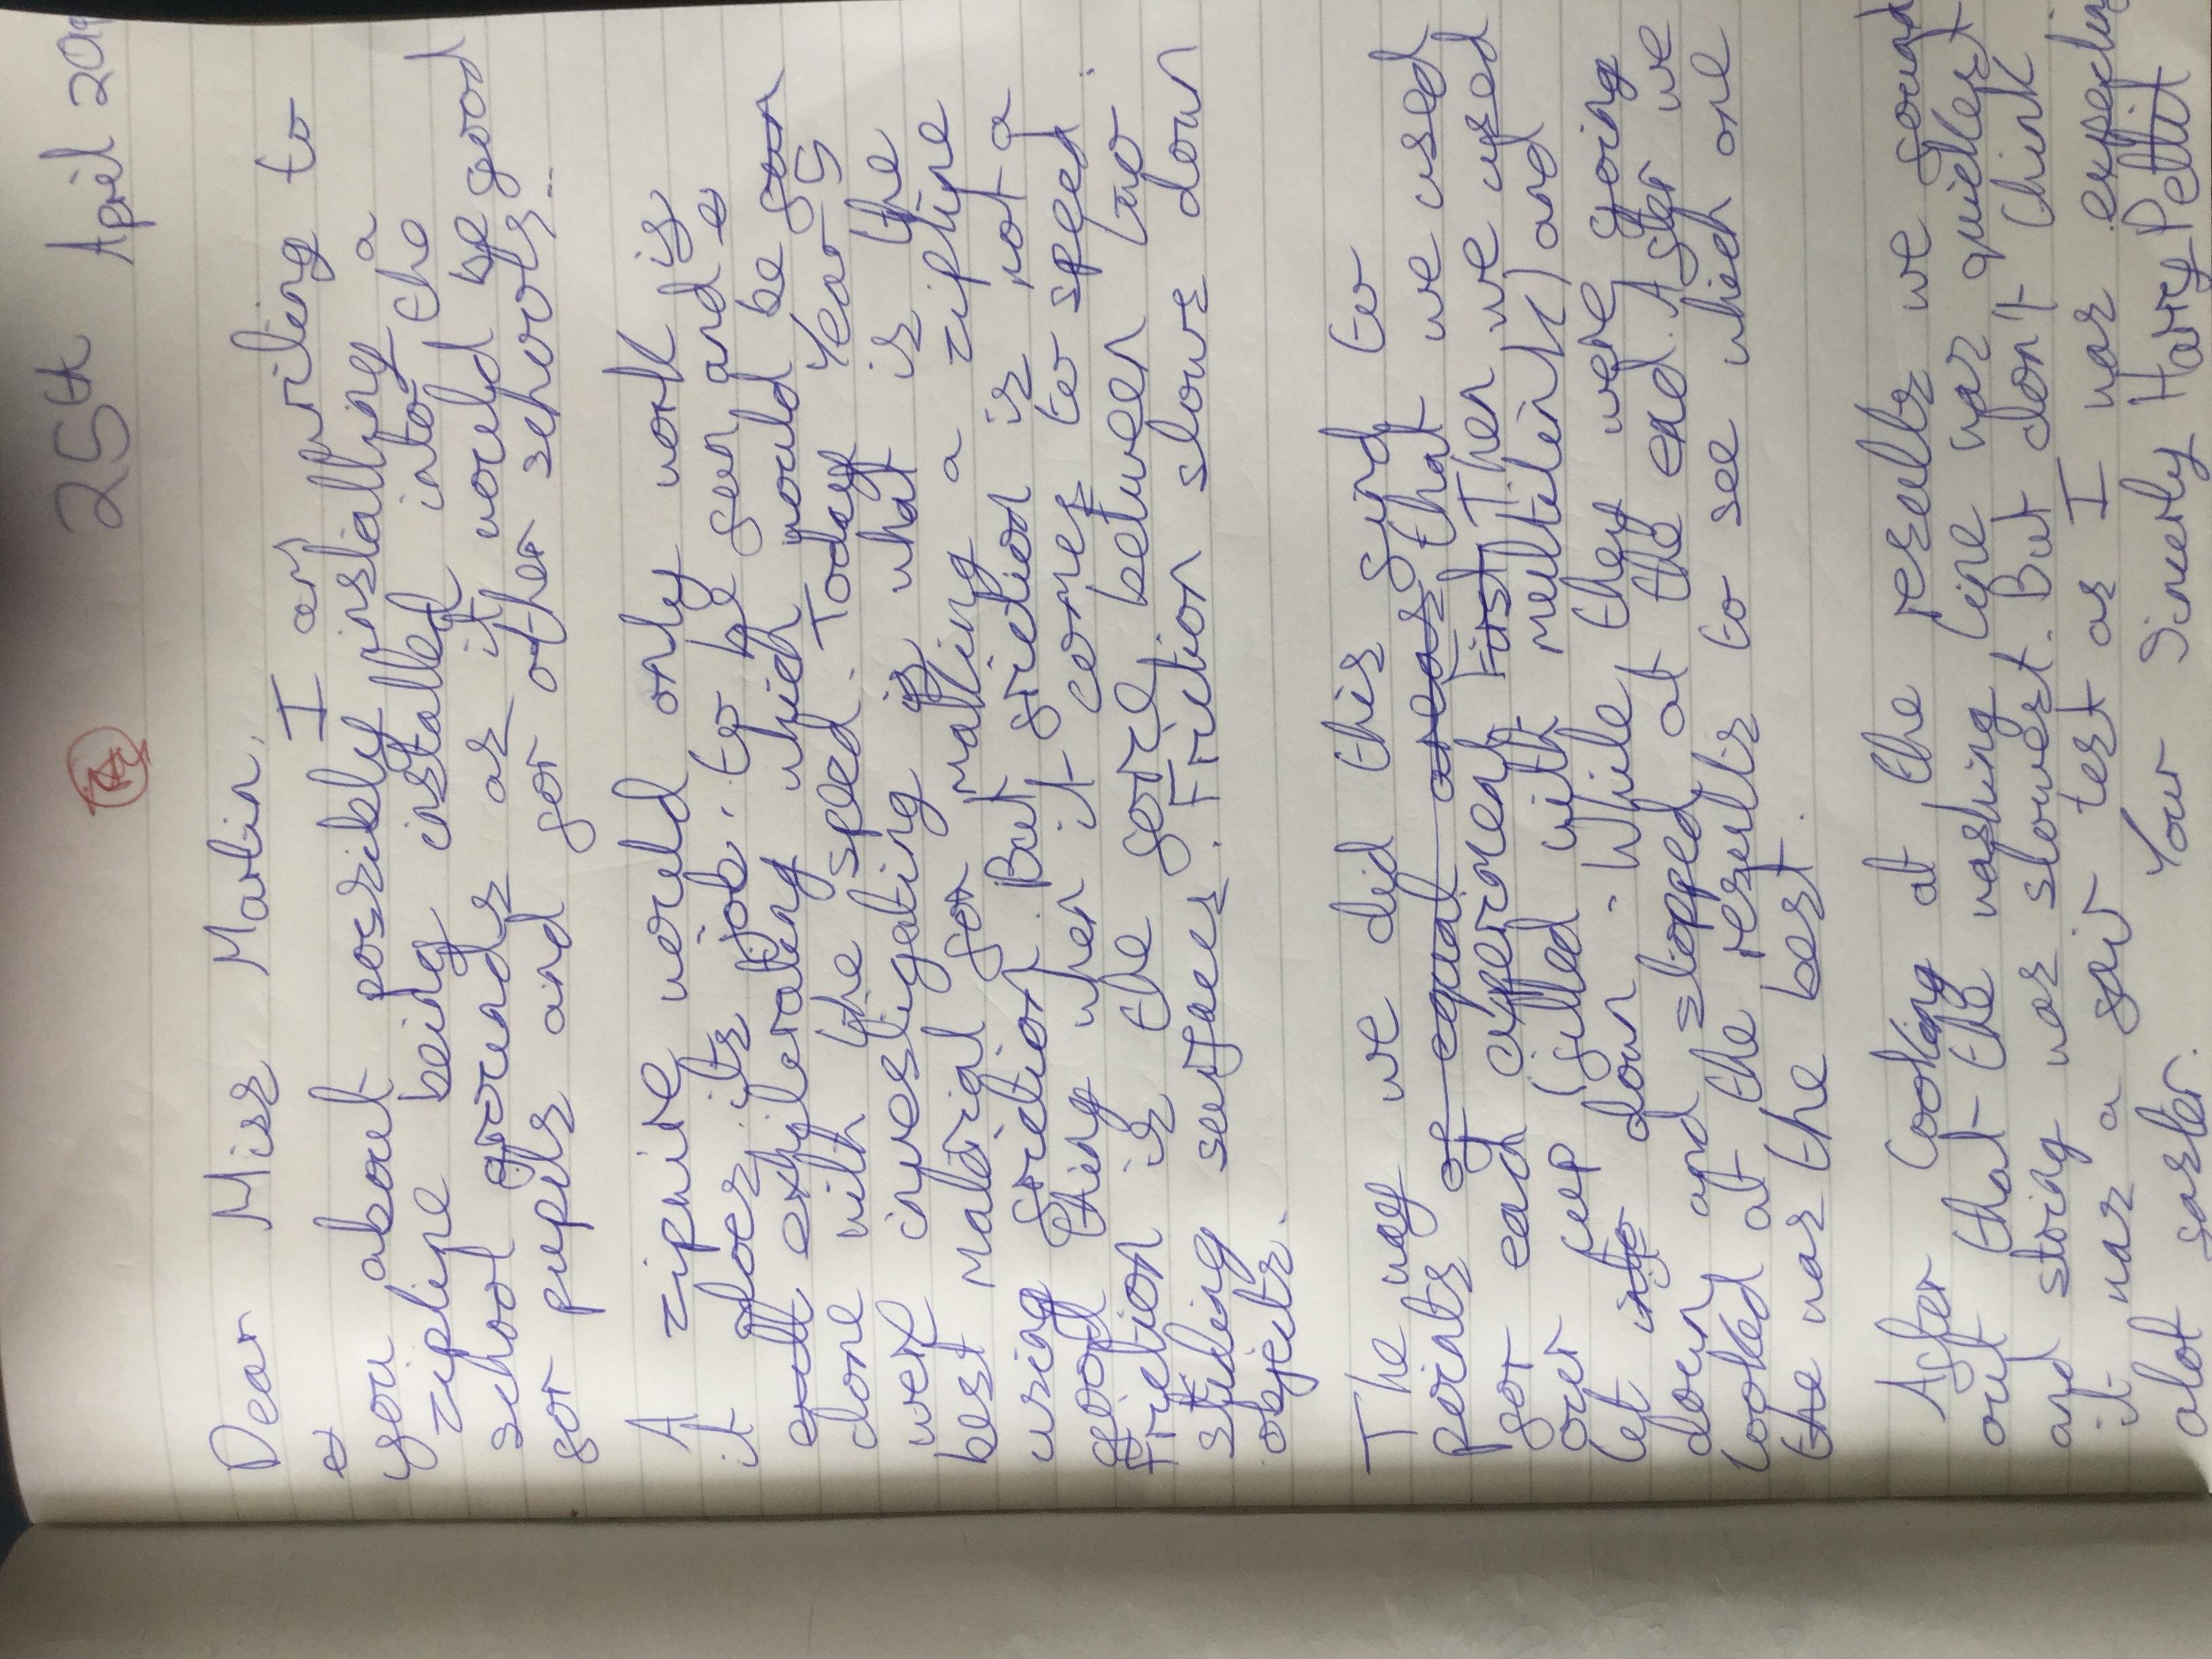 25th April 2019
Dear Miss Martin,
I am writing to
you about possibly installing a
zipline being installed into the
school grounds as it would be good
for pupils and for other schools.
A zipwire would only work is
it does its job. to be fun and e
exhilerating which would be fun
done with the speed. Today Year 5
were investigating is what is the
best material for making a zipline
using friction. But friction is not a
good thing when it comes to speed.
Friction is the force between two
sliding surfaces. Friction slows down
objects.
The way we did this fynd to
points of equal areas that we used
for each experiment First Then we used
our cup (filled with multilink) and
let into down. While they were going
down and stopped at the end. After we
looked at the results to see which one
the was the best.
After looking at the results we found
out that the washing line was quickest
and string was slowest. But don't think
it was a fair test as I was expecting
alot faster.
Your Sinerly Harry Pettit